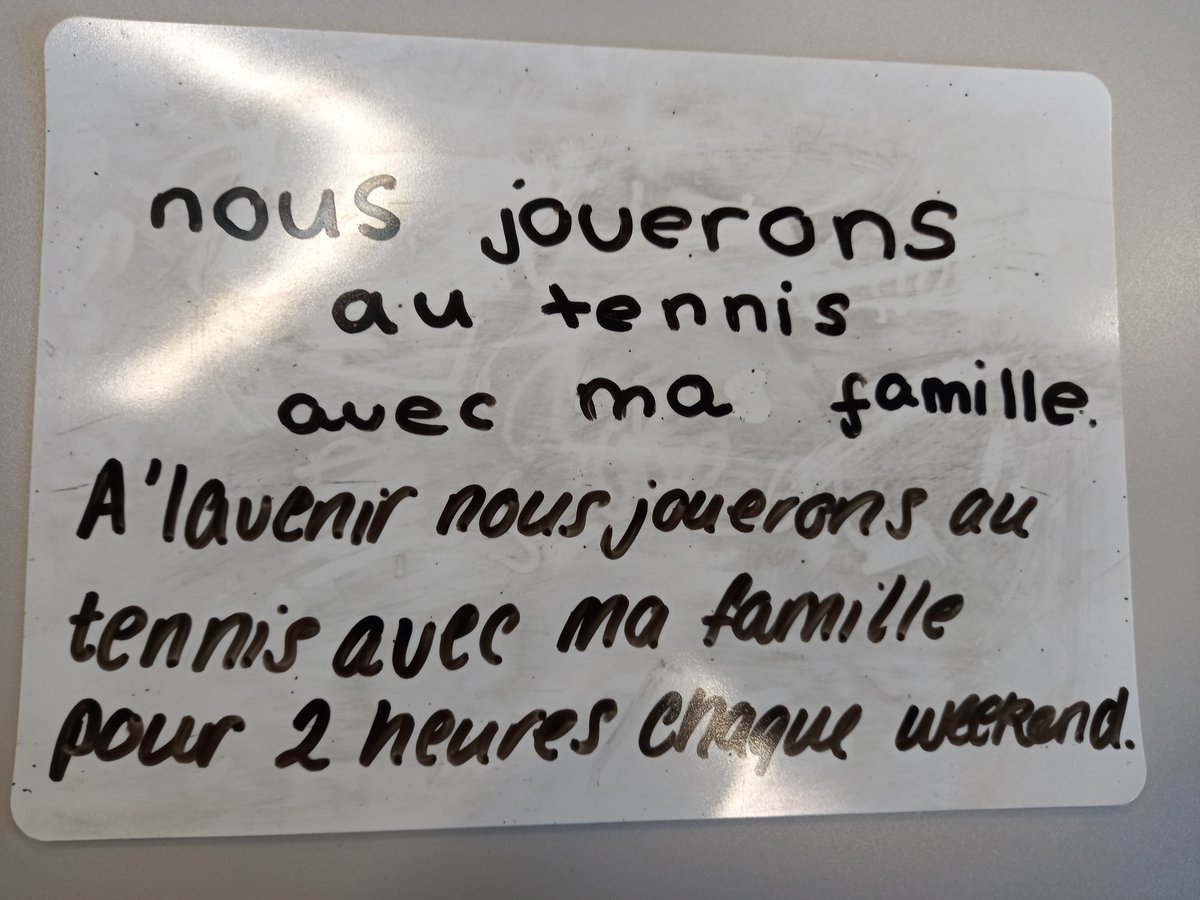 nous jouerons
au tennis
avec ma famille.
A'lavenir nous jouerons au
tennis avec ma famille
pour 2 heures chaque weekend.